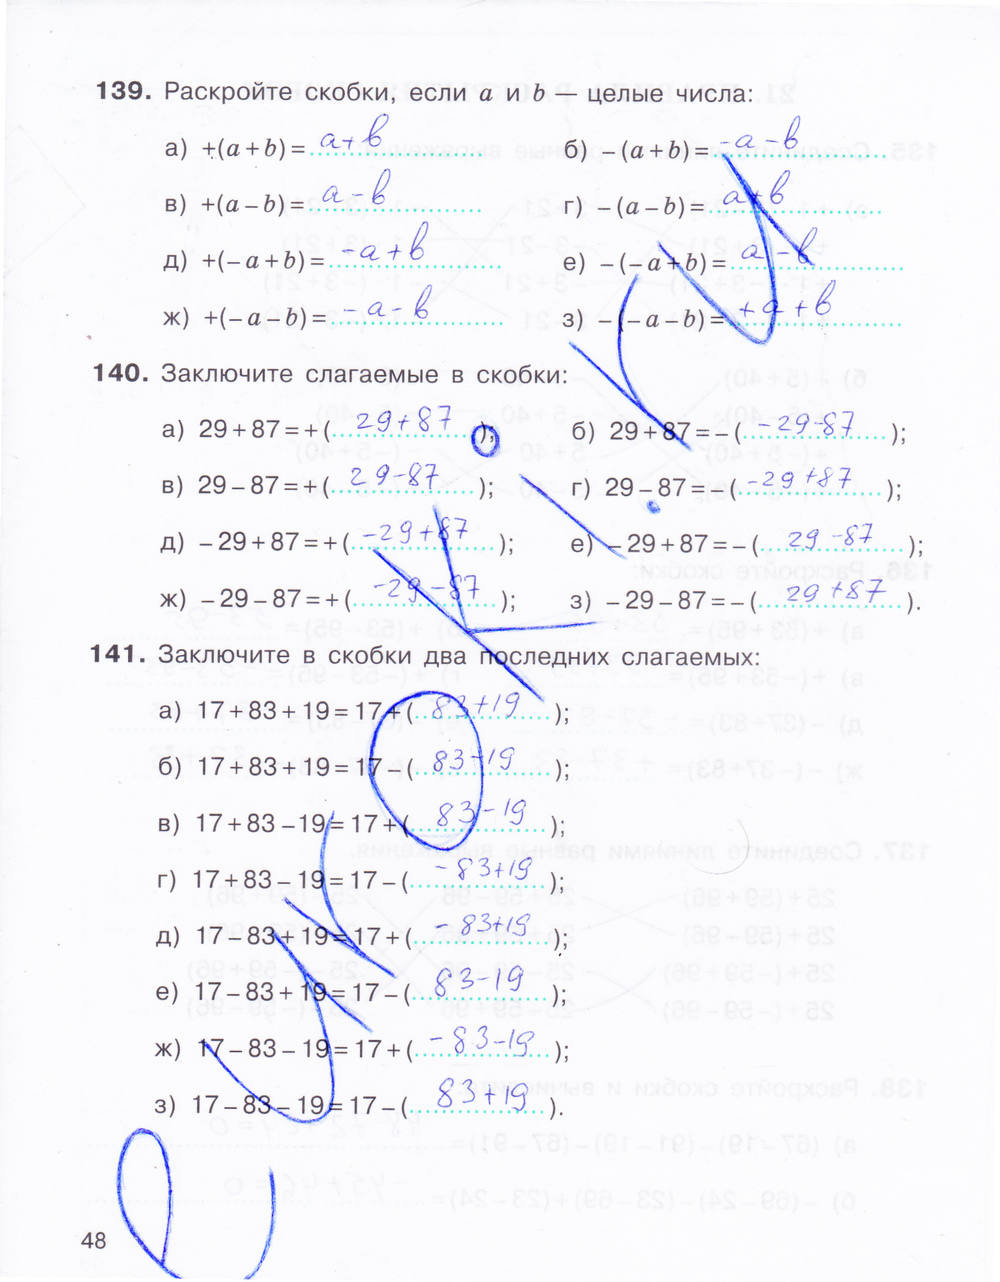 139. Раскройте скобки, если a и b – целые числа:
а) +(a + b) = a + b б) –(a + b) = -a - b
в) +(a – b) = a - b г) –(a – b) = a + b
д) +(– a + b) = -a + b е) –(– a + b) = a - b
ж) +(– a – b) = -a - b з) –(– a – b) = +a + b
140. Заключите слагаемые в скобки:
а) 29 + 87 = + ( 29+87 ); б) 29 + 87 = – ( -29-87 );
в) 29 – 87 = + ( 29-87 ); г) 29 – 87 = – ( -29+87 );
д) – 29 + 87 = + ( -29+87 ); е) – 29 + 87 = – ( 29-87 );
ж) – 29 – 87 = + ( -29-87 ); з) – 29 – 87 = – ( 29+87 ).
141. Заключите в скобки два последних слагаемых:
а) 17 + 83 + 19 = 17 + ( 83+19 );
б) 17 + 83 + 19 = 17 – ( 83-19 );
в) 17 + 83 – 19 = 17 + ( 83-19 );
г) 17 + 83 – 19 = 17 – ( -83+19 );
д) 17 – 83 + 19 = 17 + ( -83+19 );
е) 17 – 83 + 19 = 17 – ( 83-19 );
ж) 17 – 83 – 19 = 17 + ( -83-19 );
з) 17 – 83 – 19 = 17 – ( 83+19 ).
48